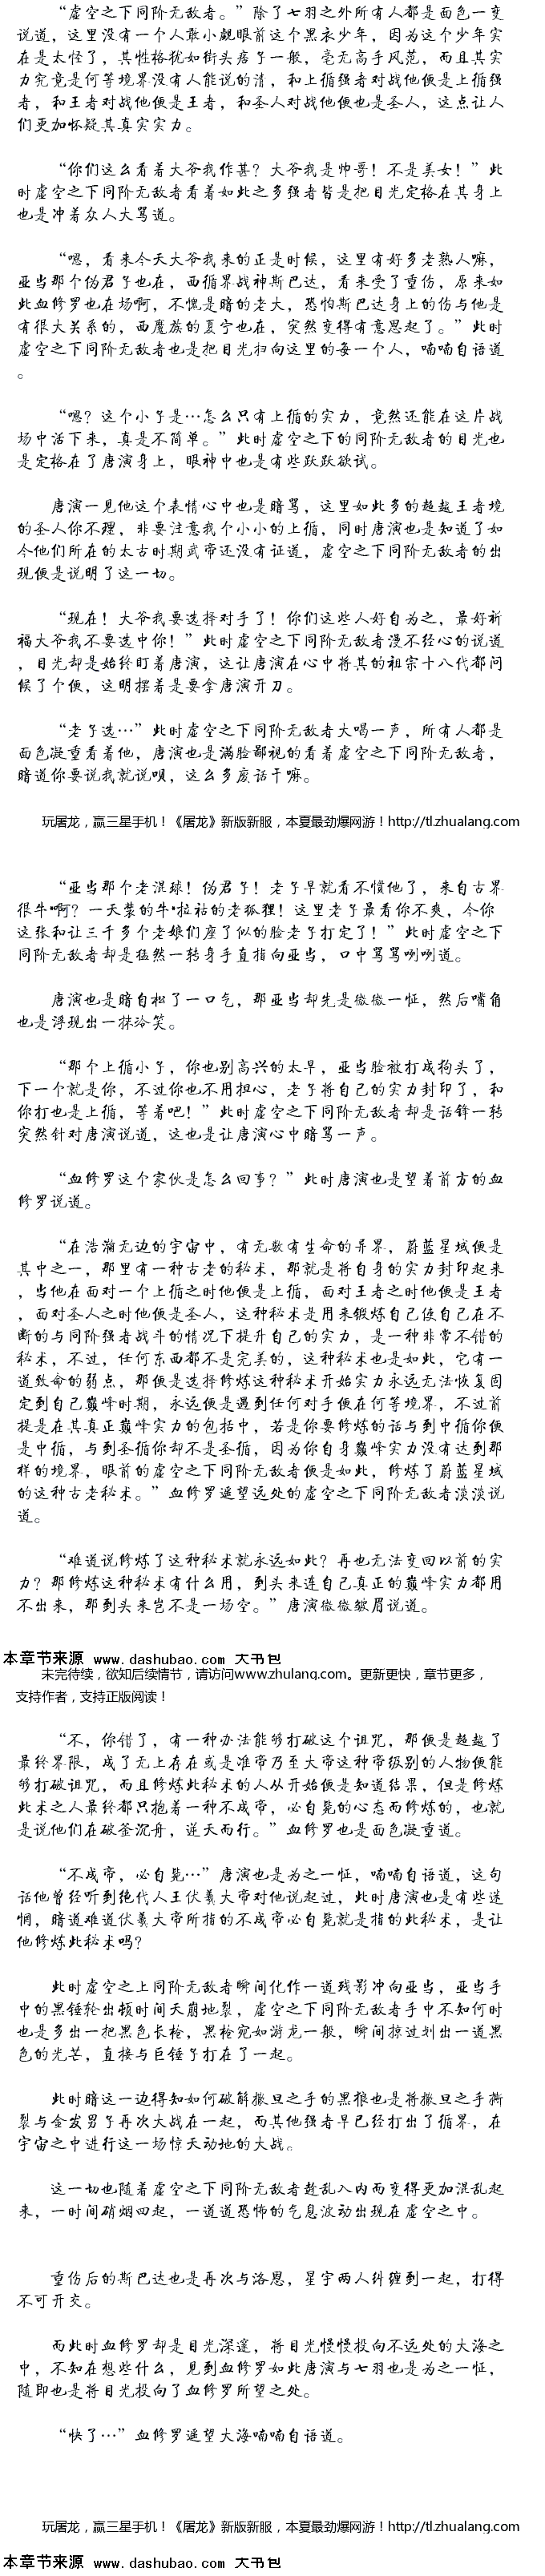 “虚空之下同阶无敌者。”除了七羽之外所有人都是面色一变
说道，这里没有一个人敢小觑眼前这个黑衣少年，因为这个少年实
在是太怪了，其性格犹如街头痞子一般，毫无高手风范，而且其实
力究竟是何等境界没有人能说的清，和上循强者对战他便是上循强
者，和王者对战他便是王者，和圣人对战他便也是圣人，这点让人
们更加怀疑其真实实力。
“你们这么看着大爷我作甚？大爷我是帅哥！不是美女！”此
时虚空之下同阶无敌者看着如此之多强者皆是把目光定格在其身上
也是冲着众人大骂道。
“嗯，看来今天大爷我来的正是时候，这里有好多老熟人嘛，
亚当那个伪君子也在，西循界战神斯巴达，看来受了重伤，原来如
此血修罗也在场啊，不愧是暗的老大，恐怕斯巴达身上的伤与他是
有很大关系的，西魔族的夏宁也在，突然变得有意思起了。”此时
虚空之下同阶无敌者也是把目光扫向这里的每一个人，喃喃自语道
。
“嗯？这个小子是…怎么只有上循的实力，竟然还能在这片战
场中活下来，真是不简单。”此时虚空之下的同阶无敌者的目光也
是定格在了唐演身上，眼神中也是有些跃跃欲试。
唐演一见他这个表情心中也是暗骂，这里如此多的超越王者境
的圣人你不理，非要注意我个小小的上循，同时唐演也是知道了如
今他们所在的太古时期武帝还没有证道，虚空之下同阶无敌者的出
现便是说明了这一切。
“现在！大爷我要选择对手了！你们这些人好自为之，最好祈
福大爷我不要选中你！”此时虚空之下同阶无敌者漫不经心的说道
，目光却是始终盯着唐演，这让唐演在心中将其的祖宗十八代都问
候了个便，这明摆着是要拿唐演开刀。
“老子选…”此时虚空之下同阶无敌者大喝一声，所有人都是
面色凝重看着他，唐演也是满脸鄙视的看着虚空之下同阶无敌者，
暗道你要说我就说呗，这么多废话干嘛。
玩屠龙，赢三星手机！《屠龙》新版新服，本夏最劲爆网游！http://tl.zhualang.com
“亚当那个老混球！伪君子！老子早就看不惯他了，来自古界
很牛·啊？一天装的牛·拉祜的老狐狸！这里老子最看你不爽，今你
这张和让三千多个老娘们座了似的脸老子打定了！”此时虚空之下
同阶无敌者却是猛然一转身手直指向亚当，口中骂骂咧咧道。
唐演也是暗自松了一口气，那亚当却先是微微一怔，然后嘴角
也是浮现出一抹冷笑。
“那个上循小子，你也别高兴的太早，亚当脸被打成狗头了，
下一个就是你，不过你也不用担心，老子将自己的实力封印了，和
你打也是上循，等着吧！”此时虚空之下同阶无敌者却是话锋一转
突然针对唐演说道，这也是让唐演心中暗骂一声。
“血修罗这个家伙是怎么回事？”此时唐演也是望着前方的血
修罗说道。
“在浩瀚无边的宇宙中，有无数有生命的异界，蔚蓝星域便是
其中之一，那里有一种古老的秘术，那就是将自身的实力封印起来
，当他在面对一个上循之时他便是上循，面对王者之时他便是王者
，面对圣人之时他便是圣人，这种秘术是用来锻炼自己使自己在不
断的与同阶强者战斗的情况下提升自己的实力，是一种非常不错的
秘术，不过，任何东西都不是完美的，这种秘术也是如此，它有一
道致命的弱点，那便是选择修炼这种秘术开始实力永远无法恢复固
定到自己巅峰时期，永远便是遇到任何对手便在何等境界，不过前
提是在其真正巅峰实力的包括中，若是你要修炼的话与到中循你便
是中循，与到圣循你却不是圣循，因为你自身巅峰实力没有达到那
样的境界，眼前的虚空之下同阶无敌者便是如此，修炼了蔚蓝星域
的这种古老秘术。”血修罗遥望远处的虚空之下同阶无敌者淡淡说
道。
“难道说修炼了这种秘术就永远如此？再也无法变回以前的实
力？那修炼这种秘术有什么用，到头来连自己真正的巅峰实力都用
不出来，那到头来岂不是一场空。”唐演微微皱眉说道。
本章节来源 www.dashubao.com 大书包
未完待续，欲知后续情节，请访问www.zhulang.com。更新更快，章节更多，
支持作者，支持正版阅读！
“不，你错了，有一种办法能够打破这个诅咒，那便是超越了
最终界限，成了无上存在或是准帝乃至大帝这种帝级别的人物便能
够打破诅咒，而且修炼此秘术的人从开始便是知道结果，但是修炼
此术之人最终都只抱着一种不成帝，必自毙的心态而修炼的，也就
是说他们在破釜沉舟，逆天而行。”血修罗也是面色凝重道。
“不成帝，必自毙…”唐演也是为之一怔，喃喃自语道，这句
话他曾经听到绝代人王伏羲大帝对他说起过，此时唐演也是有些迷
惘，暗道难道伏羲大帝所指的不成帝必自毙就是指的此秘术，是让
他修炼此秘术吗？
此时虚空之上同阶无敌者瞬间化作一道残影冲向亚当，亚当手
中的黑锤轮出顿时间天崩地裂，虚空之下同阶无敌者手中不知何时
也是多出一把黑色长枪，黑枪宛如游龙一般，瞬间掠过划出一道黑
色的光芒，直接与巨锤子打在了一起。
此时暗这一边得知如何破解撒旦之手的黑狼也是将撒旦之手撕
裂与金发男子再次大战在一起，而其他强者早已经打出了循界，在
宇宙之中进行这一场惊天动地的大战。
这一切也随着虚空之下同阶无敌者趁乱入内而变得更加混乱起
来，一时间硝烟四起，一道道恐怖的气息波动出现在虚空之中。
重伤后的斯巴达也是再次与洛恩，星宇两人纠缠到一起，打得
不可开交。
而此时血修罗却是目光深邃，将目光慢慢投向不远处的大海之
中，不知在想些什么，见到血修罗如此唐演与七羽也是为之一怔，
随即也是将目光投向了血修罗所望之处。
“快了…”血修罗遥望大海喃喃自语道。
玩屠龙，赢三星手机！《屠龙》新版新服，本夏最劲爆网游！http://tl.zhualang.com
本章节来源 www.dashubao.com 大书包